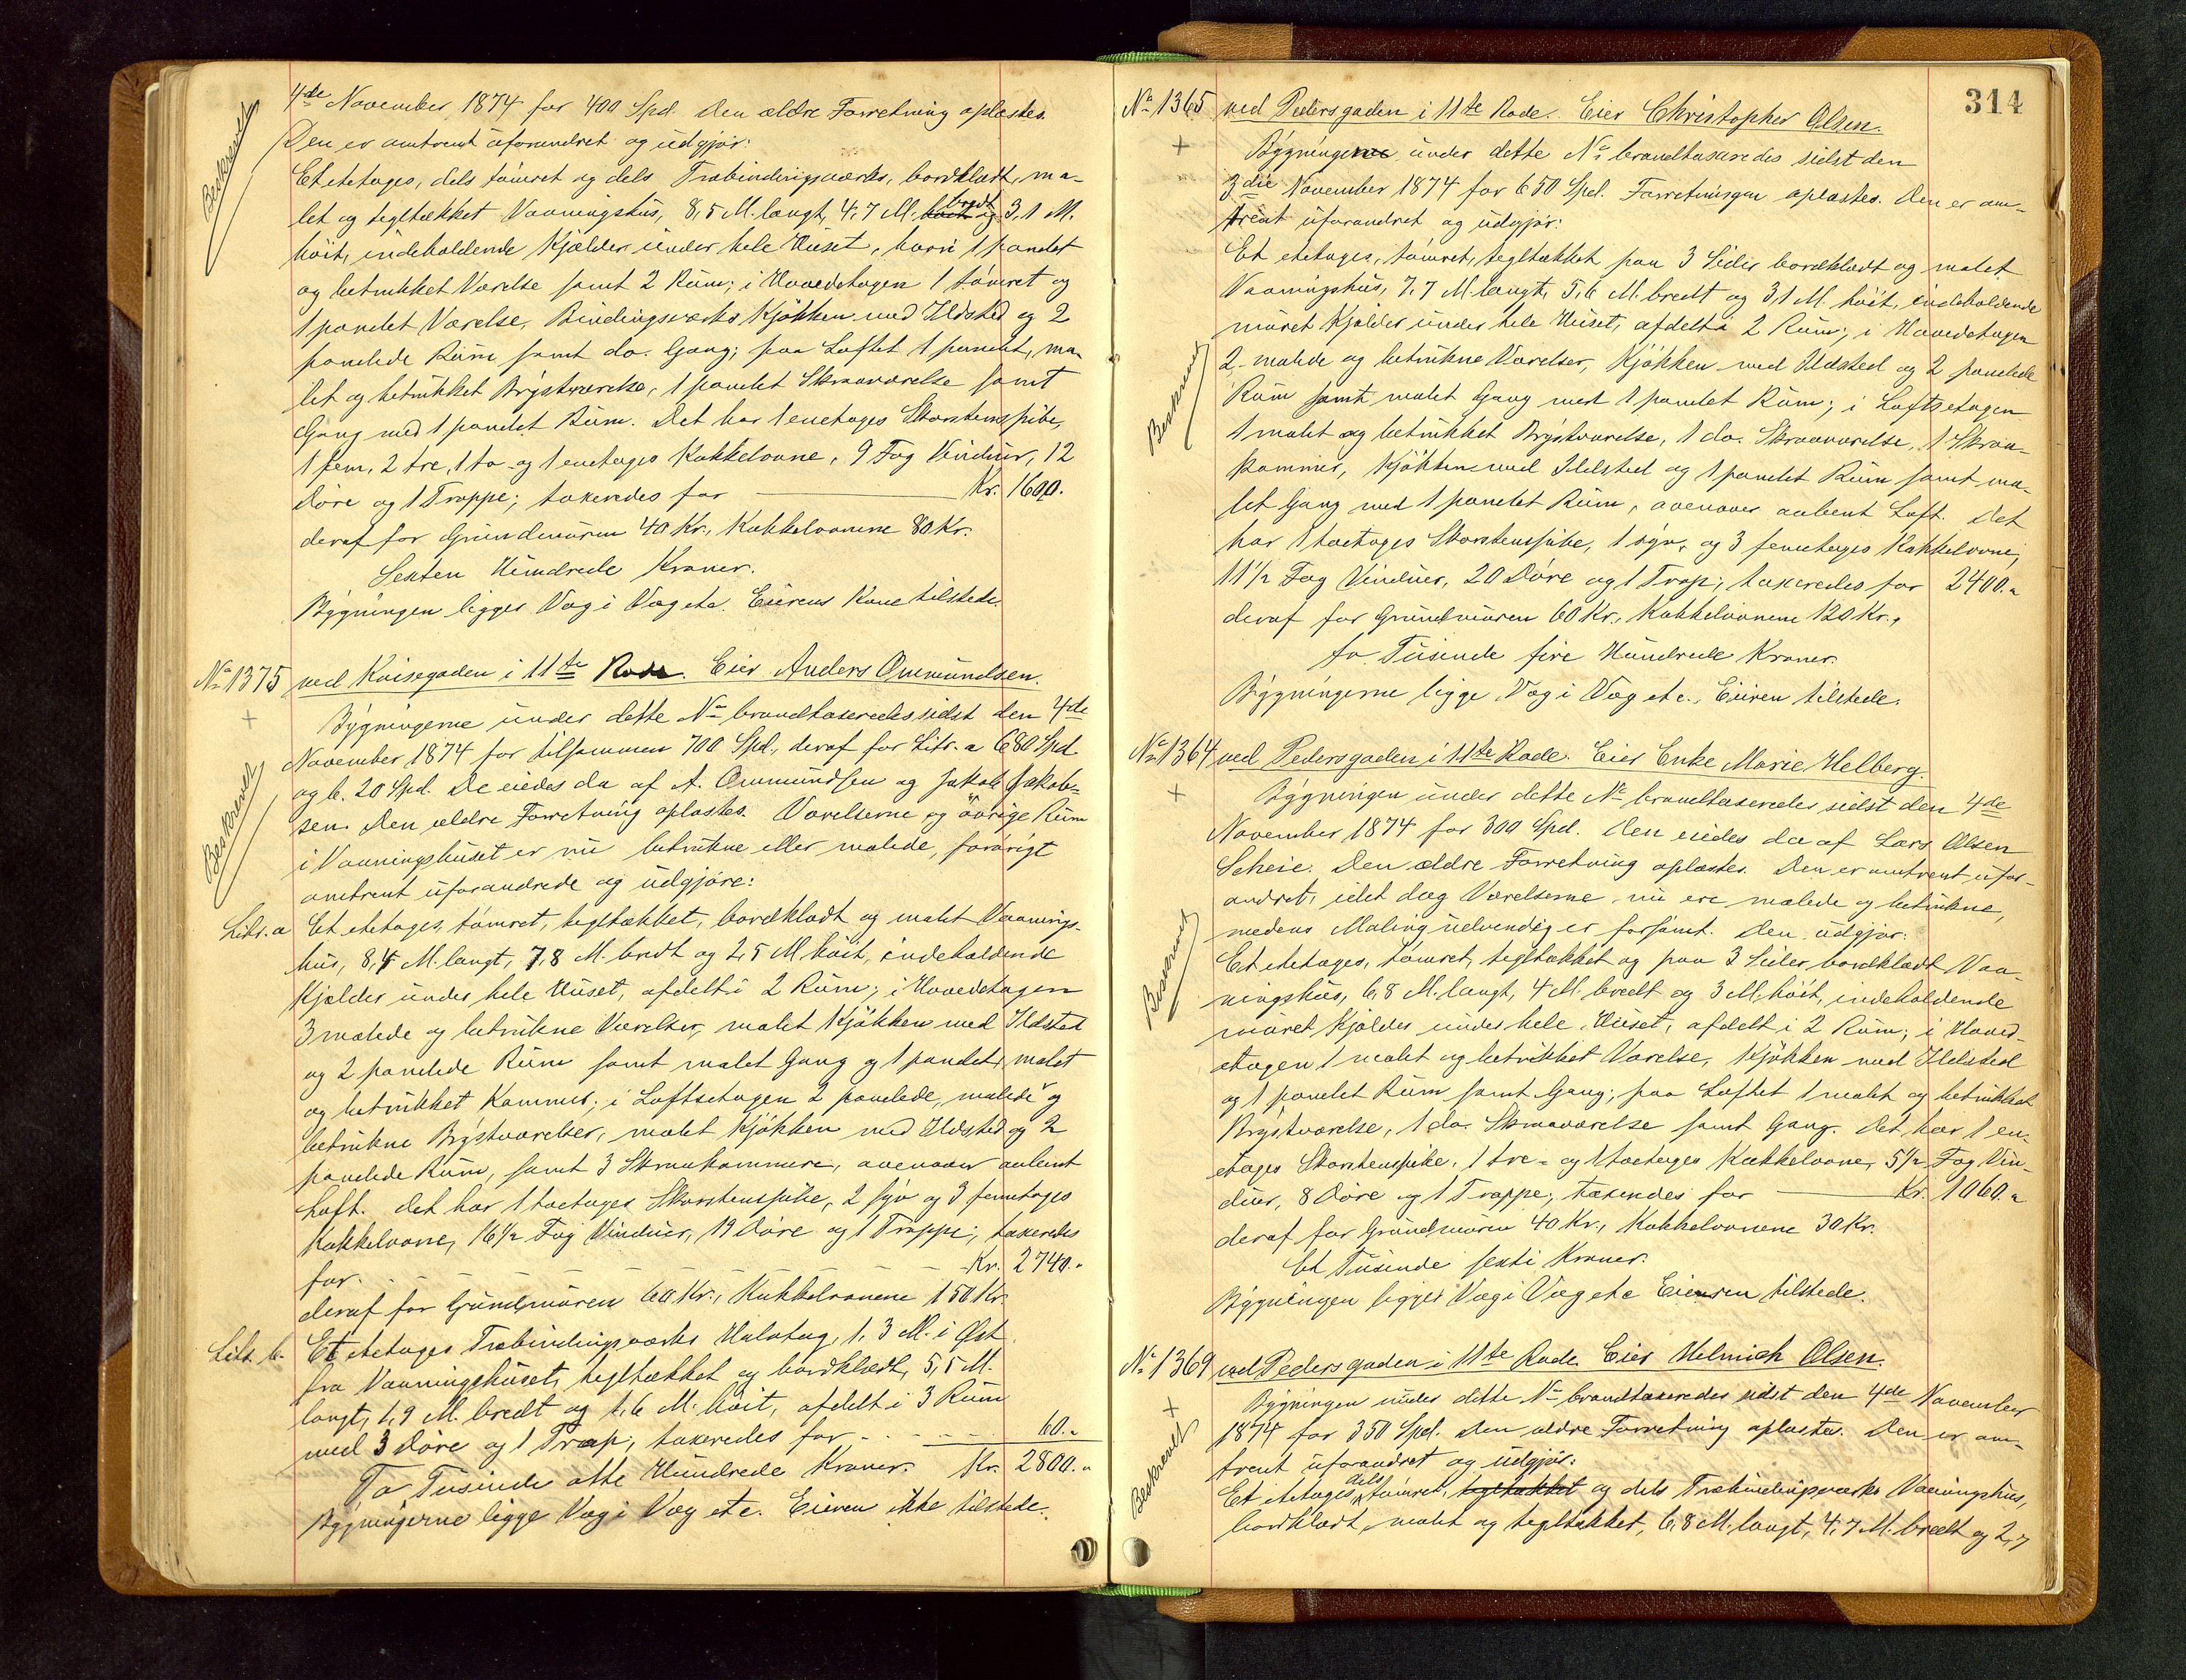 4de November 1874 for 400 Spd. Den ældre Forretning oplæstes.
Den er omtrent uforandret og udgjør:
Beskrevet
Et etetages, dels tømret og dels Træbindingsværks, bordklædt, ma-
let og tegltækket Vaaningshus, 8,5 M. langt, 4,7 M. bredt og 3,1 M.
høit, indeholdende Kjælder under hele Huset, hvori 1 panelt
og betrukket Værelse samt 2 Rum; i Hovedetagen 1 tømret og
1 panelet Værelse, Bindingsværks Kjøkken med Ildsted og 2
panelede Rum samt do. Gang; paa Loftet 1 panelt, ma-
let og betrukket Brystværelse, 1 panelet Skraaværelse samt
Gang med 1 panelet Rum. Det har 1 enetages Skorstenspibe,
1 fem, 2 tre, 1 to og 1 enetages Kakkelovne, 9 Fag Vinduer, 12
Døre og 1 Trappe; taxeredes for Kr. 1600.
deraf for Grundmuren 40 Kr., Kakkelovnene 80 Kr.
Sexten Hundrede Kroner.
Bygningen ligger Væg i Væg etc. Eierens Kone tilstede.
No 1375 ved Kvisegaden i 11te Rode. Eier Anders Ommundsen.
Bygningerne under dette No brandtaxeredes sidst den 4de
November 1874 for tilsammen 700 Spd., deraf for Litr. a 680 Spd.
og b. 20 Spd. De eiedes da af A. Ommundsen og Jakob Jakob-
sen. Den ældre Forretning oplæstes. Værelserne og øvrige Rum
i Vaaningshuset er nu betrukne eller malede, forøvrigt
omtrent uforandrede og udgjøre:
Beskrevet
Litr. a Et etetages, tømret, tegltækket, bordklædt og malet Vaanings-
hus, 8,4 M. langt, 7,8 M. bredt og 2,5 M høit, indeholdende
Kjælder under hele Huset, afdelt i 2 Rum; i Hovedetagen
3 malede og betrukne Værelser, malet Kjøkken med Ildsted
og 2 panelede Rum samt malet Gang og 1 panelet, malet
og betrukket Kammer; i Loftsetagen 2 panelede, malede og
betrukne Brystværelser, malet Kjøkken med Ildsted og 2
panelede Rum, samt 3 Skraakammere, ovenover aabent
Loft. Det har 1 toetages Skorstenspibe, 2 syv og 3 femetages
Kakkelovne, 16½ Fag Vinduer, 19 Døre og 1 Trappe; taxeredes
for. Kr. 2740.-
deraf for Grundmuren 60 Kr., Kakkelovnene 150 Kr.
Litr. b. Et etetages Træbindingsværks Halvtag, 1,3 M. i Øst
fra Vaaningshuset, tegltækket og bordklædt, 5,5 M.
langt, 1,9 M. bredt og 1,6 M. høit, afdelt i 3 Rum
med 3 Døre og 1 Trap; taxeredes for 60.-
To Tusinde otte Hundrede Kroner. Kr. 2800.-
Bygningerne ligge Væg i Væg etc. Eieren ikke tilstede.
314
No 1365 ved Pedersgaden i 11te Rode. Eier Christopher Olsen.
Bygningerne under dette No brandtaxeredes sidst den
3die November 1874 for 650 Spd. Forretningen oplæstes. Den er om-
trent uforandret og udgjør:
Beskrevet
Et etetages, tømret, tegltækket paa 3 Sider bordklædt og malet
Vaaningshus, 7,7 M. langt, 5,6 M. bredt og 3,1 M. høit, indeholdende
muret Kjælder under hele Huset, afdelt i 2 Rum; i Hovedetagen
2 malede og betrukne Værelser, Kjøkken med Ildsted og 2 panelede
Rum samt malet Gang med 1 panelet Rum; i Loftsetagen
1 malet og betrukket Brystværelse, 1 do. Skraaværelse, 1 Skraa-
kammer, Kjøkken med Ildsted og 1 panelet Rum samt ma-
let Gang med 1 panelet Rum, ovenover aabent Loft. Det
har 1 toetages Skorstenspibe, 1 syv, og 3 femetages Kakkelovne,
11½ Fag Vinduer, 20 Døre og 1 Trap; taxeredes for 2400.-
deraf for Grundmuren 60 Kr., Kakkelovnene 120 Kr.,
to Tusinde fire Hundrede Kroner.
Bygningerne ligge Væg i Væg etc. Eieren tilstede.
No 1364 ved Pedersgaden i 11te Rode. Eier Enke Marie Helberg.
Bygningen under dette No brandtaxeredes sidst den 4de
November 1874 for 300 Spd. Den eiedes da af Lars Olsen
Scheie. Den ældre Forretning oplæstes. Den er omtrent ufor-
andret, idet dog Værelserne nu ere malede og betrukne,
medens Maling udvendig er forsømt. Den udgjør:
Beskrevet
Et etetages, tømret, tegltækket og paa 3 Sider bordklædt Vaa-
ningshus, 6,8 M. langt, 4 M. bredt og 3 M. høit, indeholdende
muret Kjælder under hele Huset, afdelt i 2 Rum; i Hoved-
etagen 1 malet og betrukket Værelse, Kjøkken med Ildsted
og 1 panelet Rum samt Gang; paa Loftet 1 malet og betrukket
Brystværelse, 1 do. Skraaværelse samt Gang. Det har 1 en-
etages Skorstenspibe, 1 tre- og 1 toetages Kakkelovne, 5½ Fag Vin-
duer, 8 Døre og 1 Trappe; taxeredes for Kr. 1060.-
deraf for Grundmuren 40 Kr., Kakkelovnene 30 Kr.
Et Tusinde sexti Kroner.
Bygningen ligger Væg i Væg etc Eiersen tilstede.
No 1369 ved Pedersgaden i 11te Rode. Eier Helmich Olsen.
Bygningen under dette No brandtaxeredes sidst den 4de November
1874 for 350 Spd. Den ældre Forretning oplæstes. Den er om-
trent uforandret og udgjør:
Beskrevet
Et etetages dels tømret, tegltækket og dels Træbindingsværks Vaaningshus,
bordklædt, malet og tegltækket, 6,8 M. langt, 4,7 M. bredt og 2,7